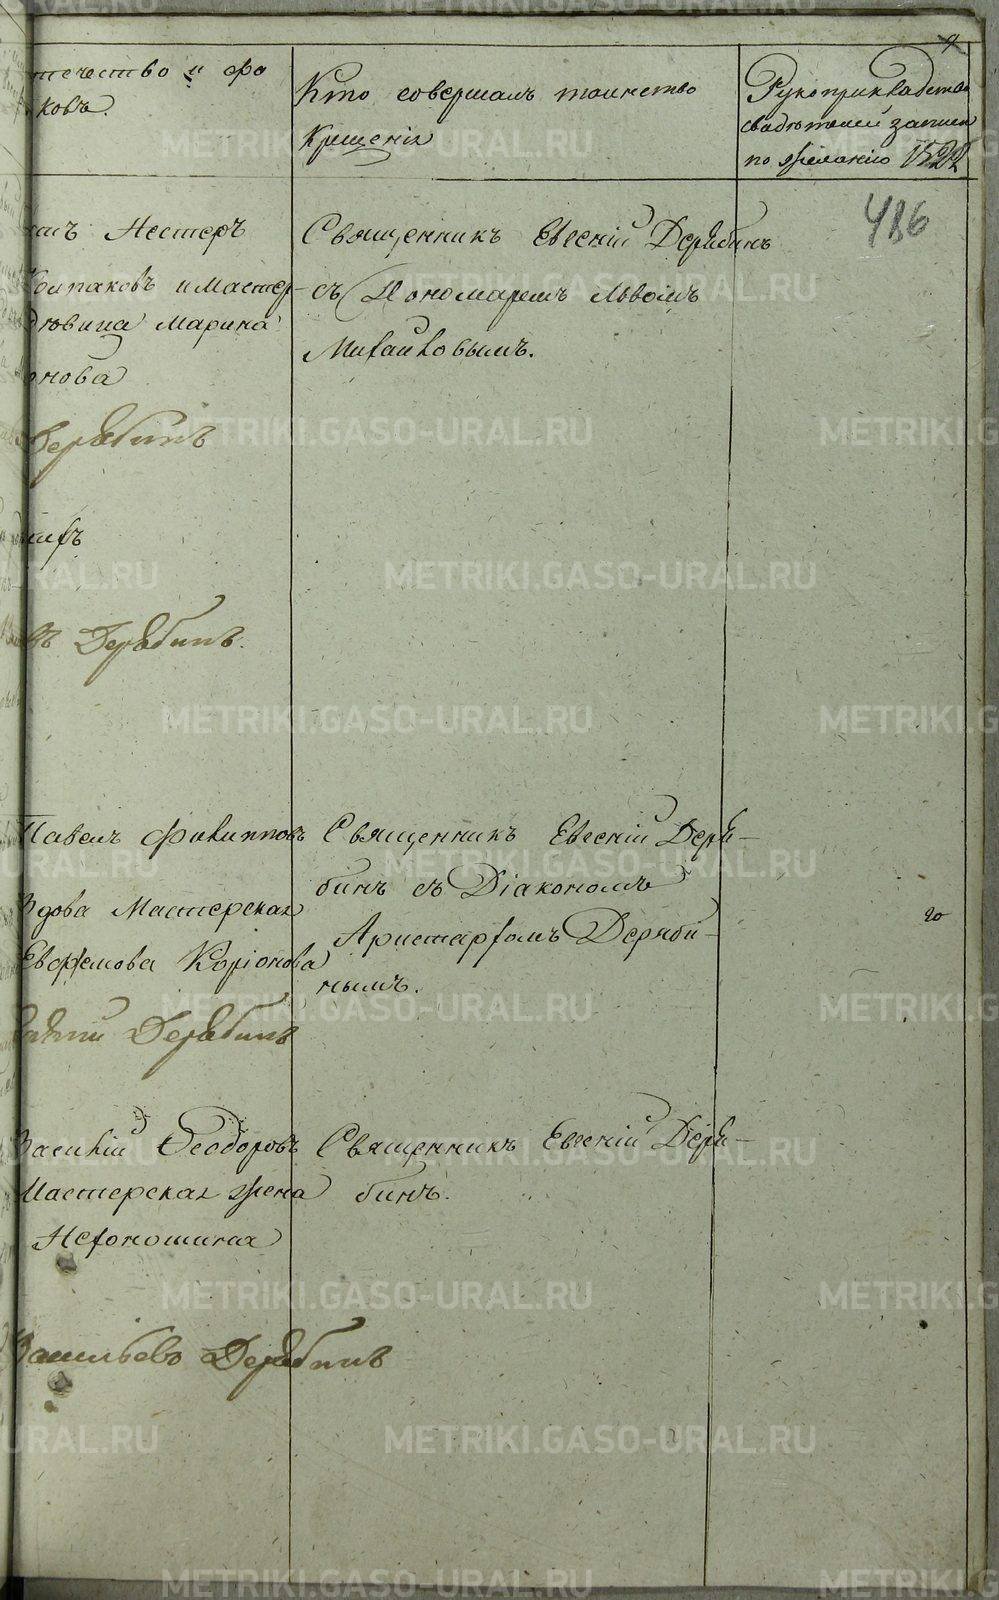 отечество и фа
ковъ.
Кто совершалъ таинство
Крещенія
Рукоприкладство
свидѣтелей записи
по желанію
486
Нестеръ
Колпаковъ и мастер-
Марина
Дерябинъ
Дерябинъ.
Священникъ Евгеній Дерябинъ
съ Пономаремъ Львомъ
Михайловымъ.
Павелъ Филипповъ
Вдова Мастерская
Евфремова Коріонова
Дерябинъ
Священникъ Евгеній Деря-
бинъ съ Діакономъ
Аристархомъ Деряби-
нымъ.
20
Василій Ѳеодоровъ
Мастерская жена
Нехоношиная
Васильевъ Дерябинъ
Священникъ Евгеній Деря-
бинъ.
METRIKI.GASO-URAL.RU